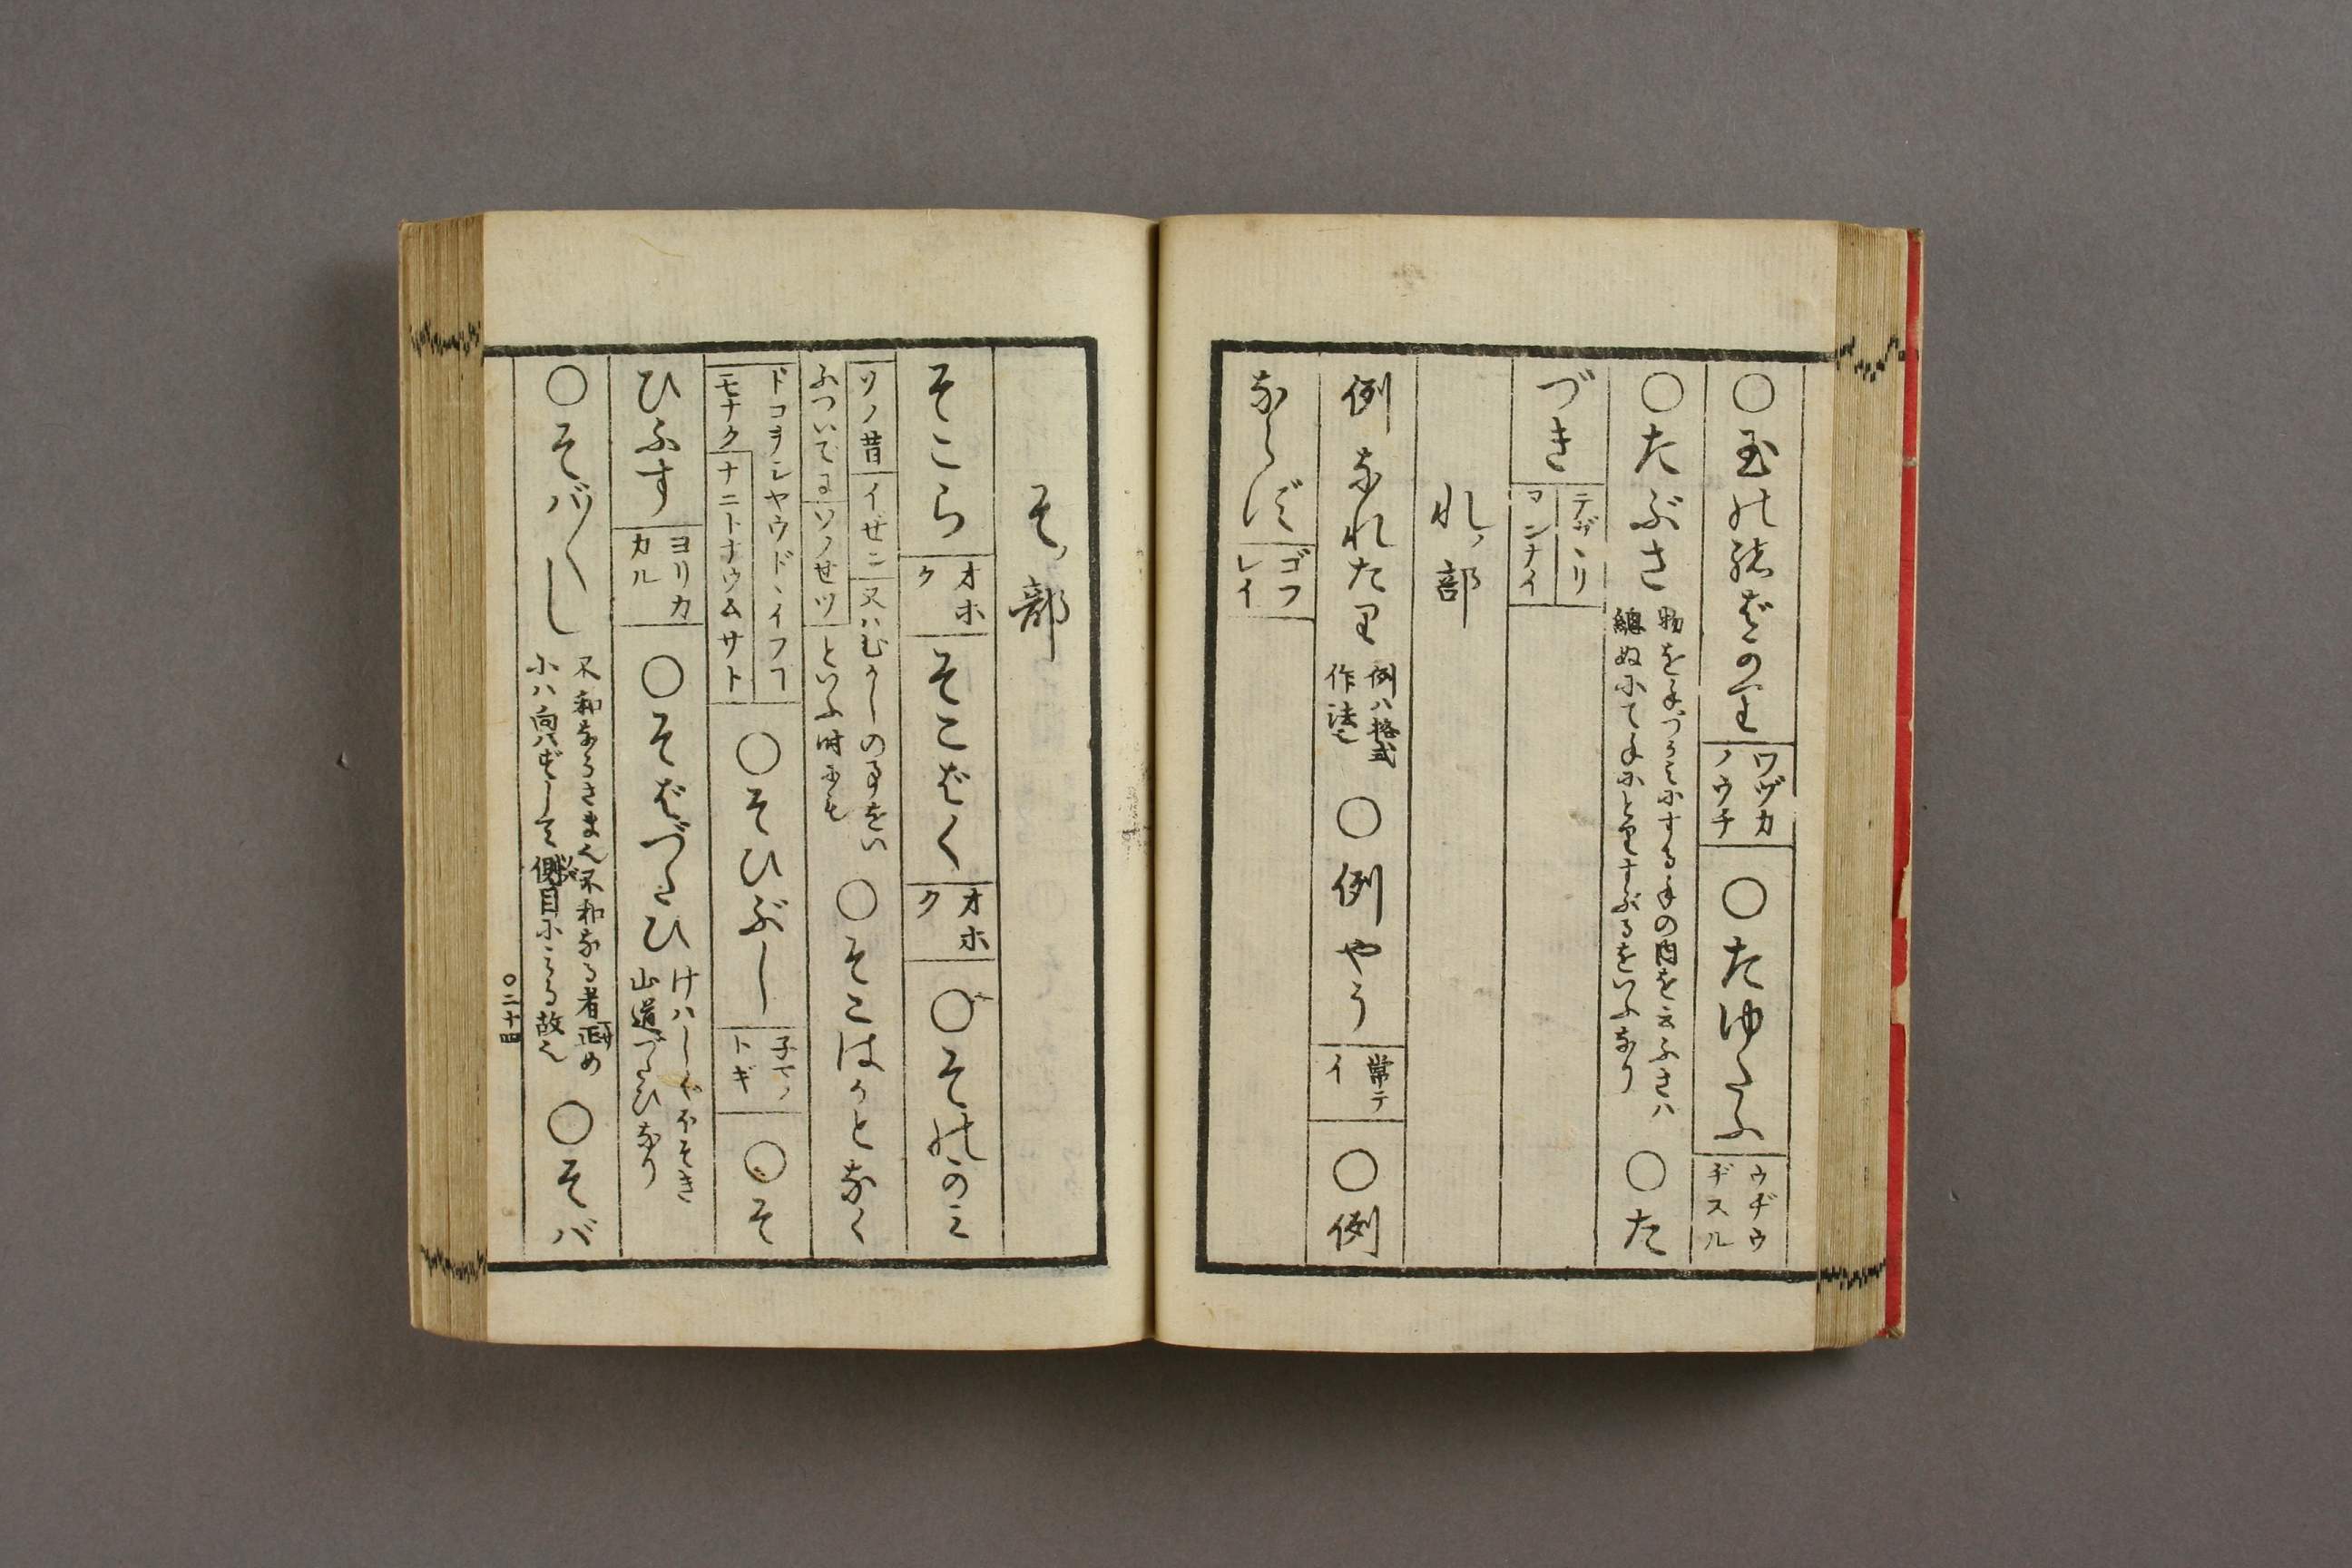 ○玉の緒ばかり ワヅカノウチ ○たゆたふ ウヂウヂスル
○たぶさ 物を手づかみにする手の内を云ふさハ總ぬにて手にとりすぶるをいふなり ○た
づき テガヽリ コンナイ
れノ部
例なれたり 例ハ格式作法也 ○例やう 常テイ ○例
ならず ゴフレイ
そノ部
そこら オホク そこばく オホク ○そのかみ
ソノ昔 イゼニ 又ハむかしの事をいふついでに ソノセツ といふ時にも ○そこはかとなく
ドコヲシヤウドヽイフコモナク ナニトナウムサト ○そひぶし 子テノトギ ○そ
ひふす ヨリカカル ○そばづたひ けハしくほそき山道づたひなり
○そバ〳〵し 不和なるさま也不和なる者正めにハ向ハずして側目にみる故也 ○そバ
○二十四